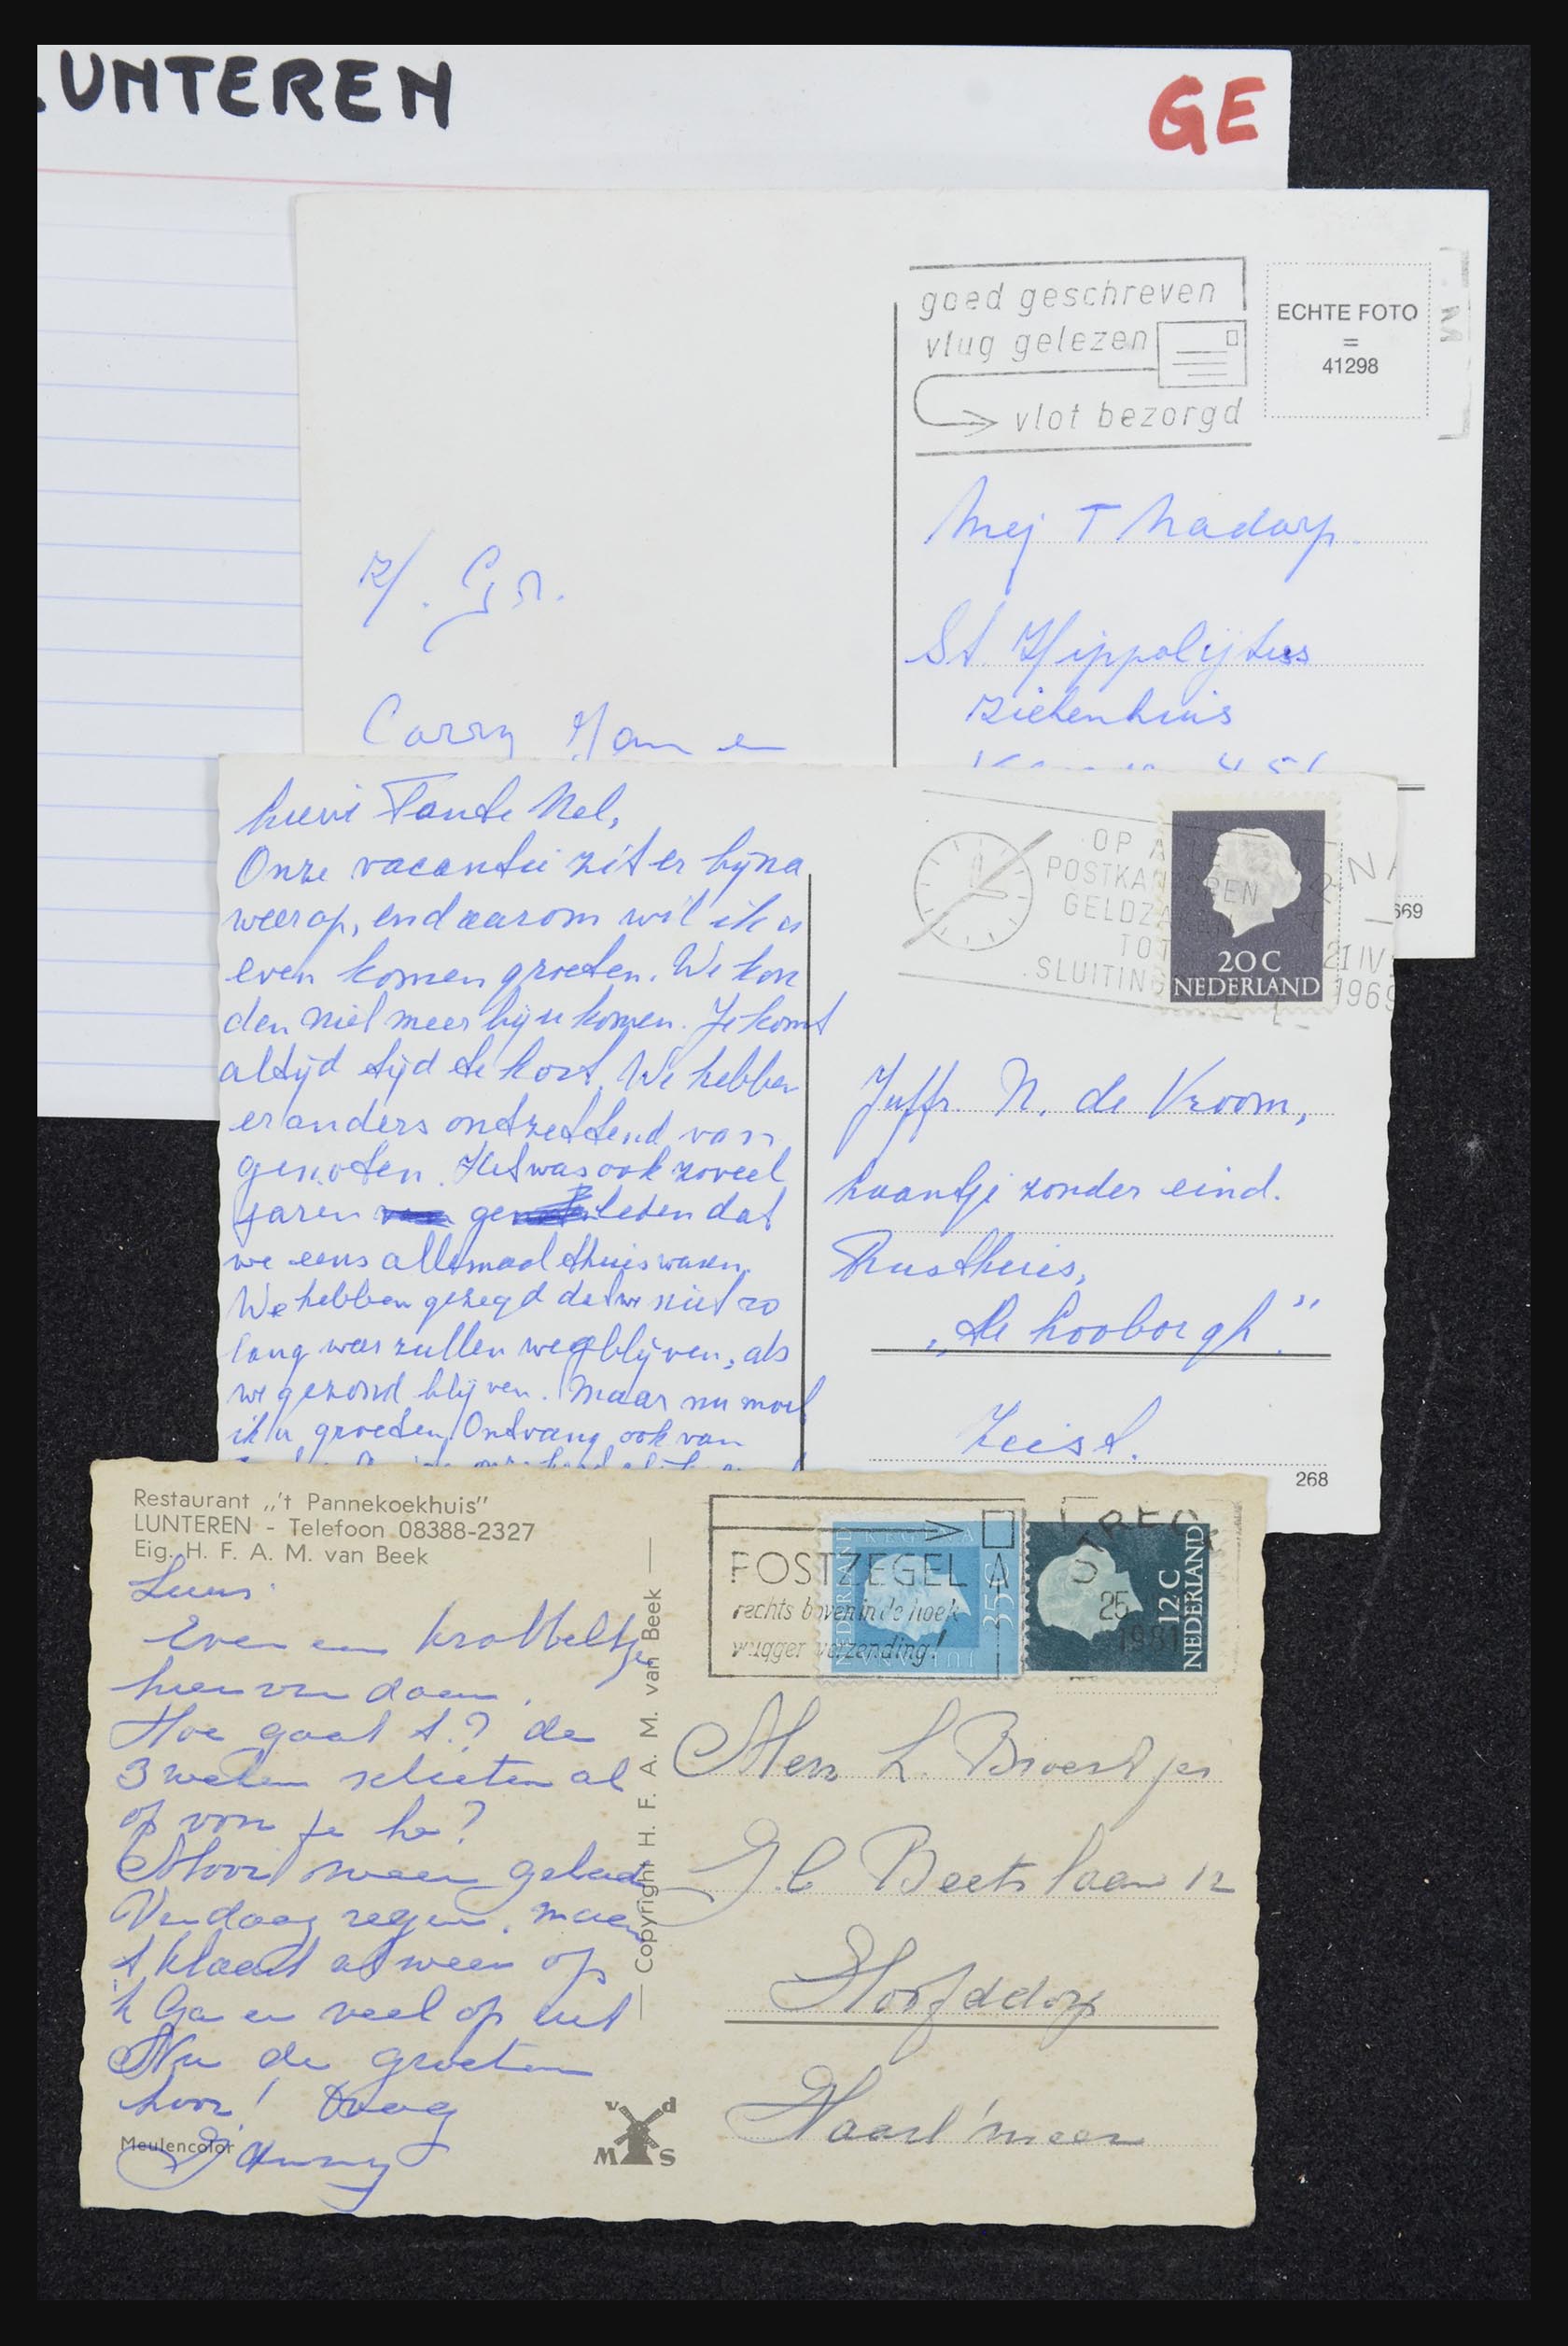 LUNTEREN
GE
goed geschreven
vlug gelezen
vlot bezorgd
ECHTE FOTO
=
41298
Mej T Nadorp
H. Gr.
St Hippolijtus
Ziekenhuis
Corry Han en
669
Lieve Tante Nel,
Onze vacantie zit er bijna
weer op, en daarom wil ik u
even komen groeten. We kon
den niet meer bij u komen. Je komt
altijd tijd te kort. We hebben
er anders ontzettend van
genoten. Het was ook zoveel
jaren geleden dat
we eens allemaal thuis waren.
We hebben gezegd dat we niet zo
lang weer zullen wegblijven, als
we gezond blijven. Maar nu moet
ik u groeten. Ontvang ook van
OP A
POSTKANTOREN
GELDZA
TOT
SLUITING
20 C
NEDERLAND
21 IV
1969
Juffr. N. de Vroom,
Laantje zonder eind.
Rusthuis,
„de Looborgh."
Zeist.
268
Restaurant „'t Pannekoekhuis"
LUNTEREN - Telefoon 08388-2327
Eig. H. F. A. M. van Beek
Even een krabbeltje
hier van daan.
Hoe gaat t.? de
3 weken schieten al
op von je he?
Mooi weer gehad
Vandaag regen. maar
t klaart al weer op
k Ga er veel op uit
Nu de groeten
hoor! Daag
Meulencolor
— Copyright H. F. A. M. van Beek —
v d
M S
POSTZEGEL
rechts boven in de hoek
vlugger verzending!
NEDERLAND
35 C
12 C
NEDERLAND
25
1981
Mevr L. Broertjes
Beetslaan 12
Hoofddorp
Haarl'meer